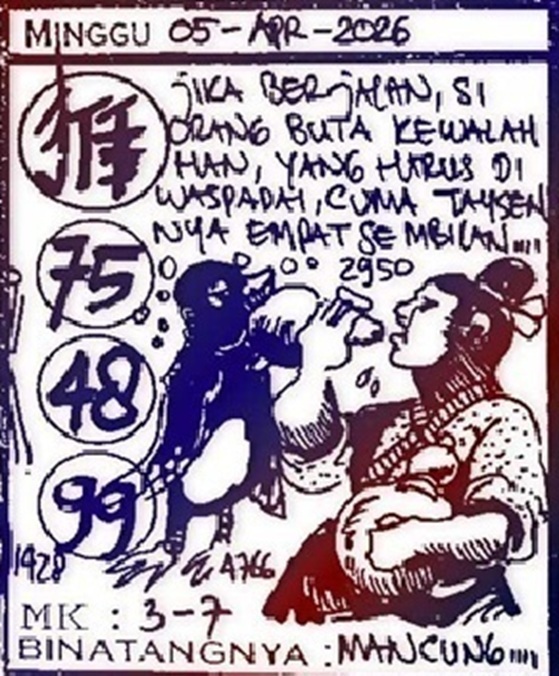 MINGGU 05-APR-2026
JIKA BERJALAN, SI
ORANG BUTA KEWALAH
HAN, YANG HARUS DI
WASPADAI, CUMA TAYSEN
NYA EMPAT SEMBILAN....
2950
75
48
99
1928
4766
MK : 3-7
BINATANGNYA : MANCUNG....